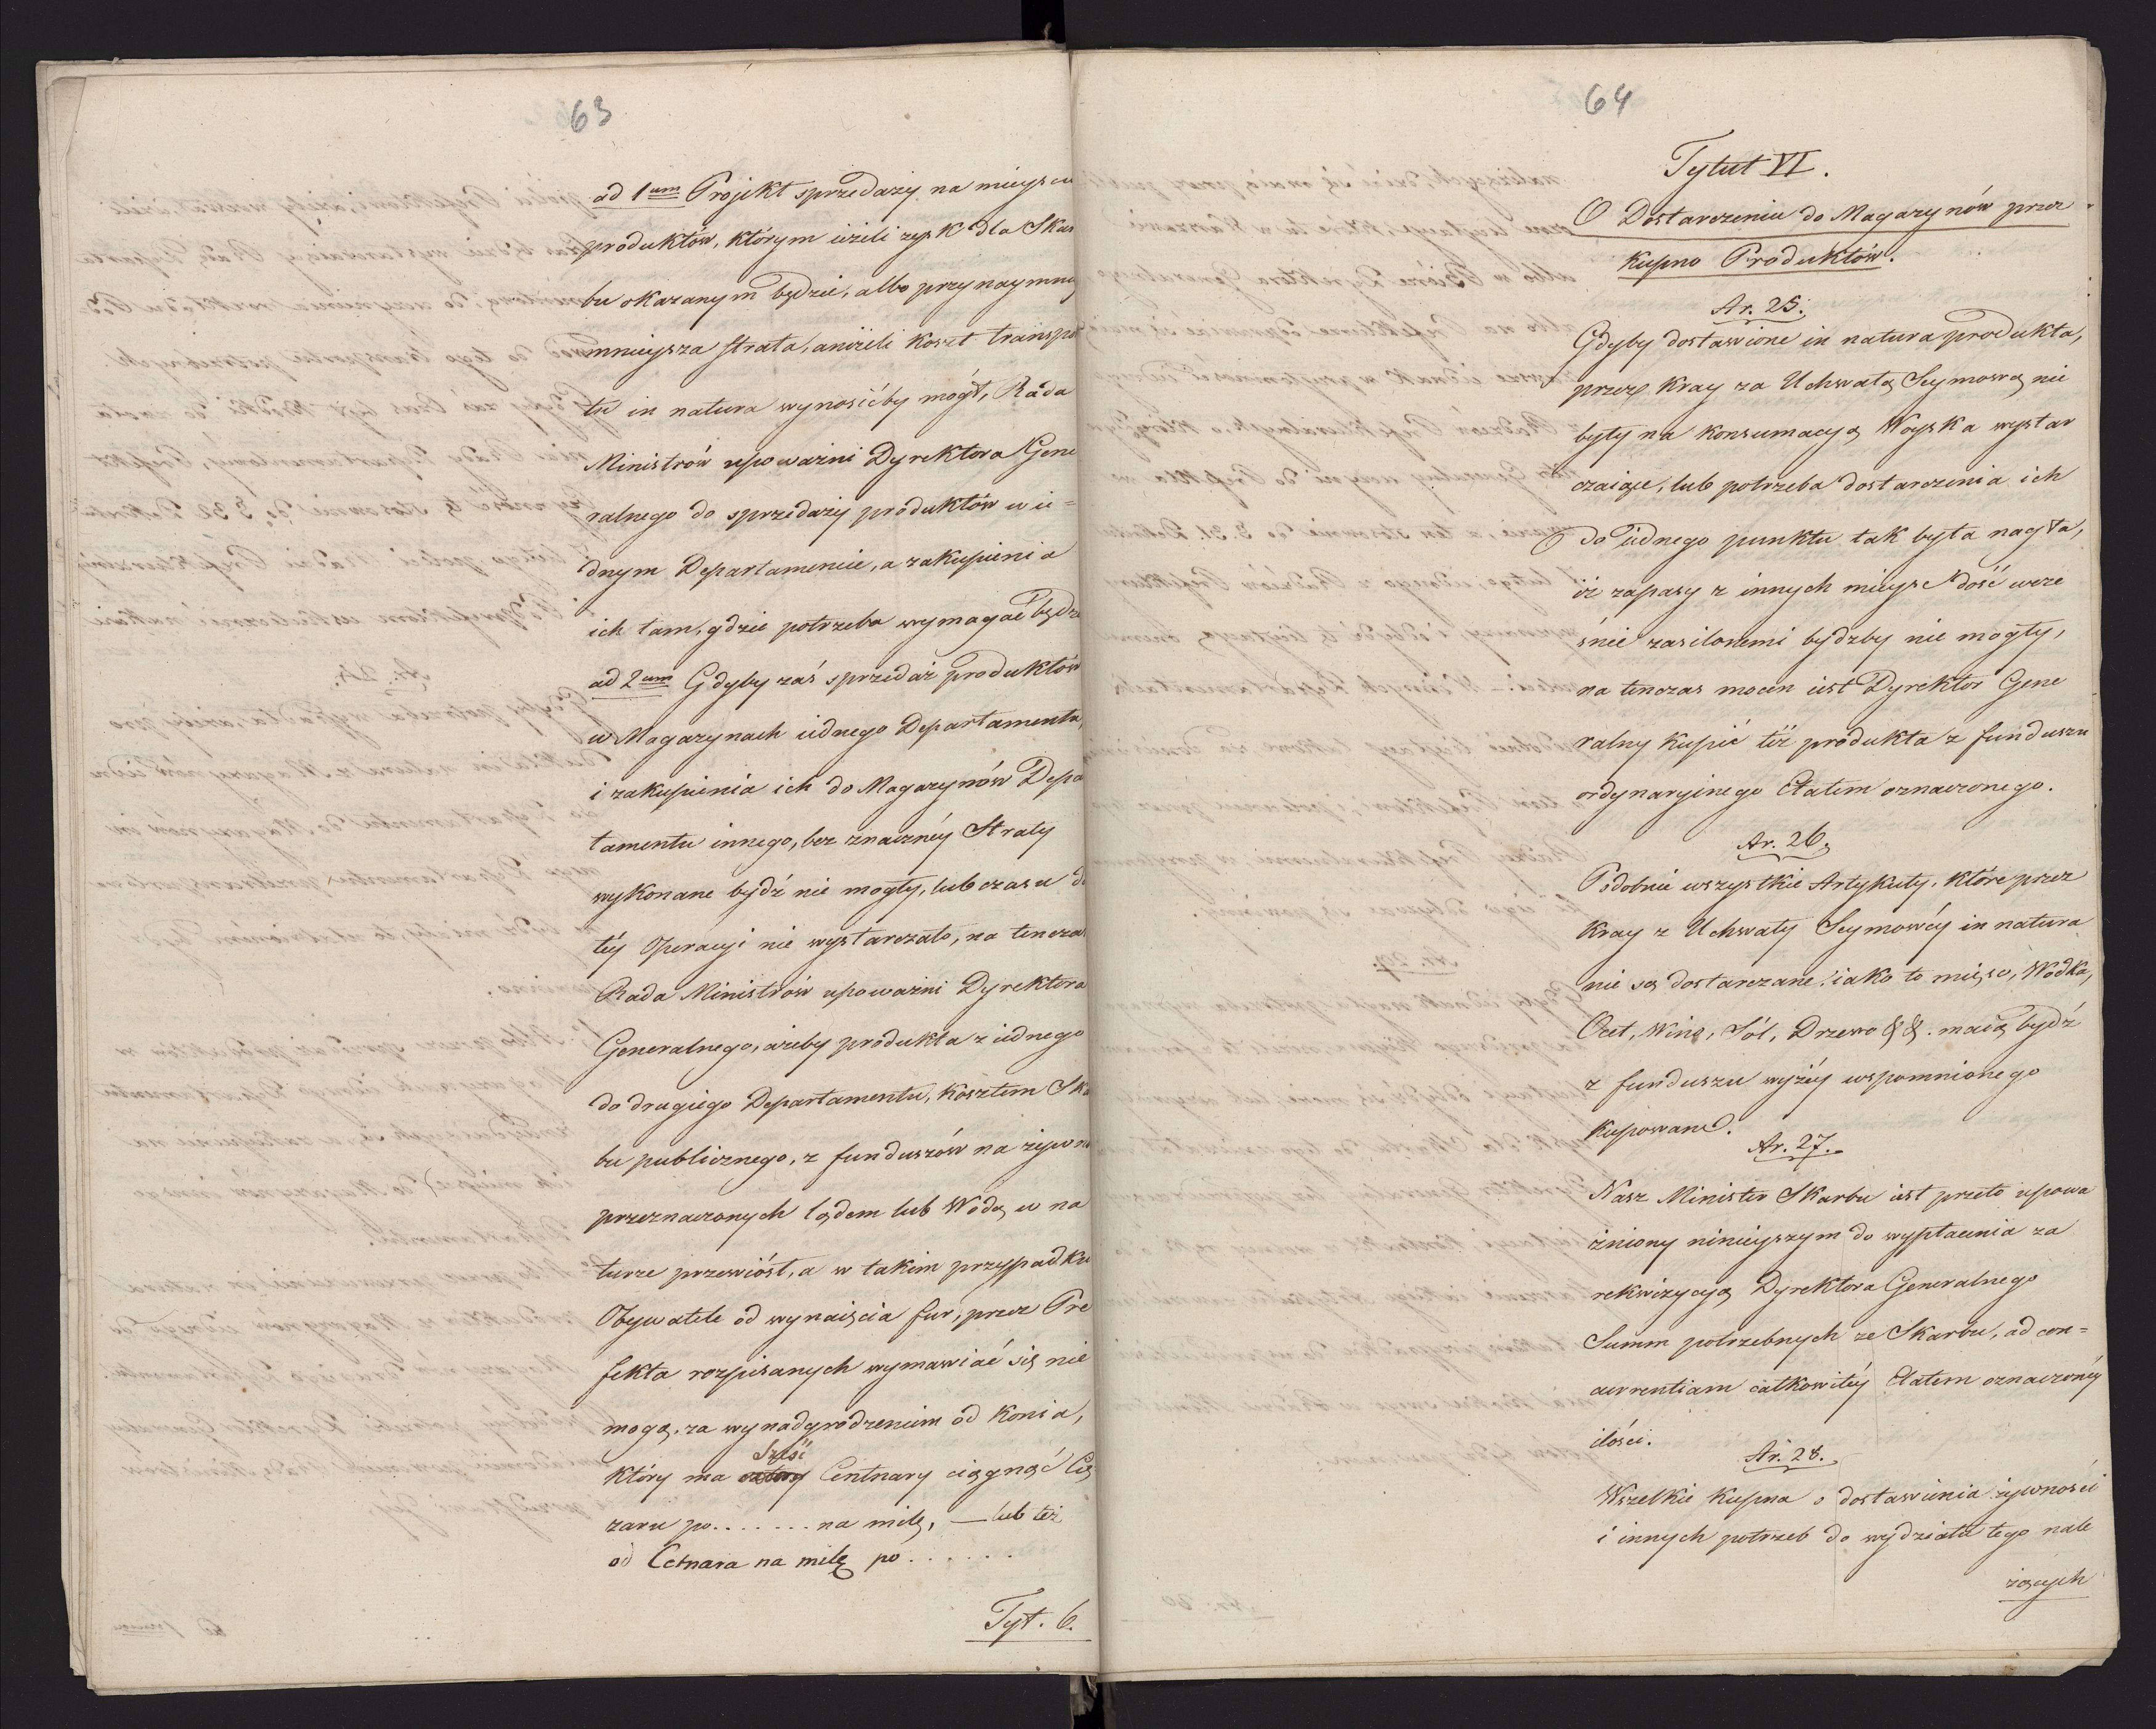 63
ad 1um Projekt sprzedaży na mieyscu
produktów, którym ieżeli zysk dla Skar
bu okazanym będzie, albo przynaymniey
mnieysza strata, aniżeli koszt transpor
tu in natura wynosićby mógł, Rada
Ministrów upoważni Dyrektora Gene
ralnego do sprzedaży produktów w ie=
dnym Departamencie, a zakupienia
ich tam, gdzie potrzeba wymagać będzie
ad 2um Gdyby zaś sprzedaż produktów
w Magazynach iednego Departamentu,
i zakupienia ich do Magazynów Depar
tamentu innego, bez znacznéy Straty
wykonane bydź nie mogły, lub czasu do
téy Operacyi nie wystarczało, na tenczas
Rada Ministrów upoważni Dyrektora
Generalnego, ażeby produkta z iednego
do drugiego Departamentu, kosztem Skar
bu publicznego, z funduszów na żywno
przeznaczonych lądem lub Wodą w na
turze przewiósł, a w takim przyppadku
Obywatele od wynaięcia fur, przez Pre
fekta rozpisanych wymawiać się nie
mogą, za wynadgrodzeniem od konia,
Sześć
który ma cztery Centnary ciągnąć Cię
żaru po....... na milę, — lub też
od Cetnara na milę po......
Tyt. 6.
64
Tytuł VI.
O Dostarczeniu do Magazynów przez
kupno Produktów.
Ar. 25.
Gdyby dostawione in natura produkta,
przez Kray za Uchwałą Seymową nie
były na konsumacyą Woyska wystar
czaiące, lub potrzeba dostarczenia ich
do iednego punktu tak była nagła,
iż zapasy z innych mieysc dość wcze
śnie zasilonemi bydźby nie mogły,
na tenczas mocen iest Dyrektor Gene
ralny kupić też produkta z funduszu
ordynaryinego Etatem oznaczonego.
Ar. 26.
Podobnie wszystkie Artykuły, które przez
Kray z Uchwały Seymowéy in natura
nie są dostarczane, iako to mięso, Wódka,
Ocet, Wino, Sól, Drzewo && maią bydź
z funduszu wyżéy wspomnionego
kupowane.
Ar. 27.
Nasz Minister Skarbu iest przeto upowa
żniony ninieyszym do wypłacenia za
rekwizycyą Dyrektora Generalnego
Summ potrzebnych ze Skarbu, ad con=
currentiam całkowitéy Etatem oznaczonéy
ilości.
Ar. 28.
Wszelkie kupna o dostawienia żywności
i innych potrzeb do wydziału tego nale
żących